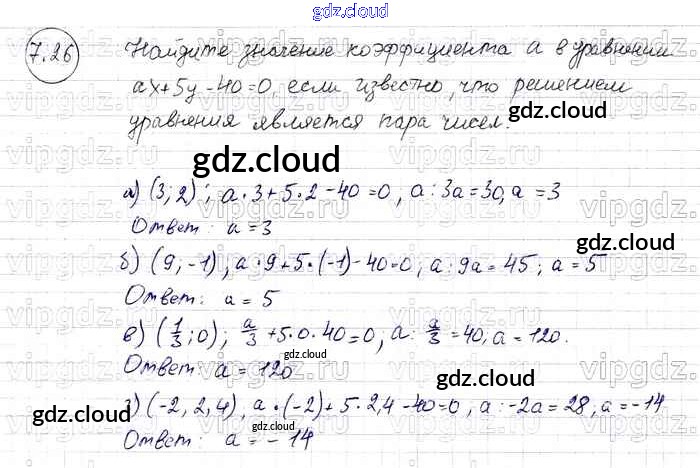 gdz.cloud
7.26 Найдите значение коэффициента а в уравнении
ax+5y-40=0, если известно, что решением
gdz.cloud
уравнения является пара чисел:
gdz.cloud
а) (3; 2); a·3+5·2-40=0; a: 3a=30, a=3
Ответ: a=3
gdz.cloud
б) (9; -1), a·9+5·(-1)-40=0, a: 9a=45; a=5
Ответ: a=5
gdz.cloud
в) (1/3; 0); a/3+5·0·40=0, a: a/3=40, a=120.
gdz.cloud
Ответ: a=120
gdz.cloud
г) (-2, 2,4), a·(-2)+5·2,4-40=0, a: -2a=28, a=-14
gdz.cloud
gdz.cloud
Ответ: a=-14